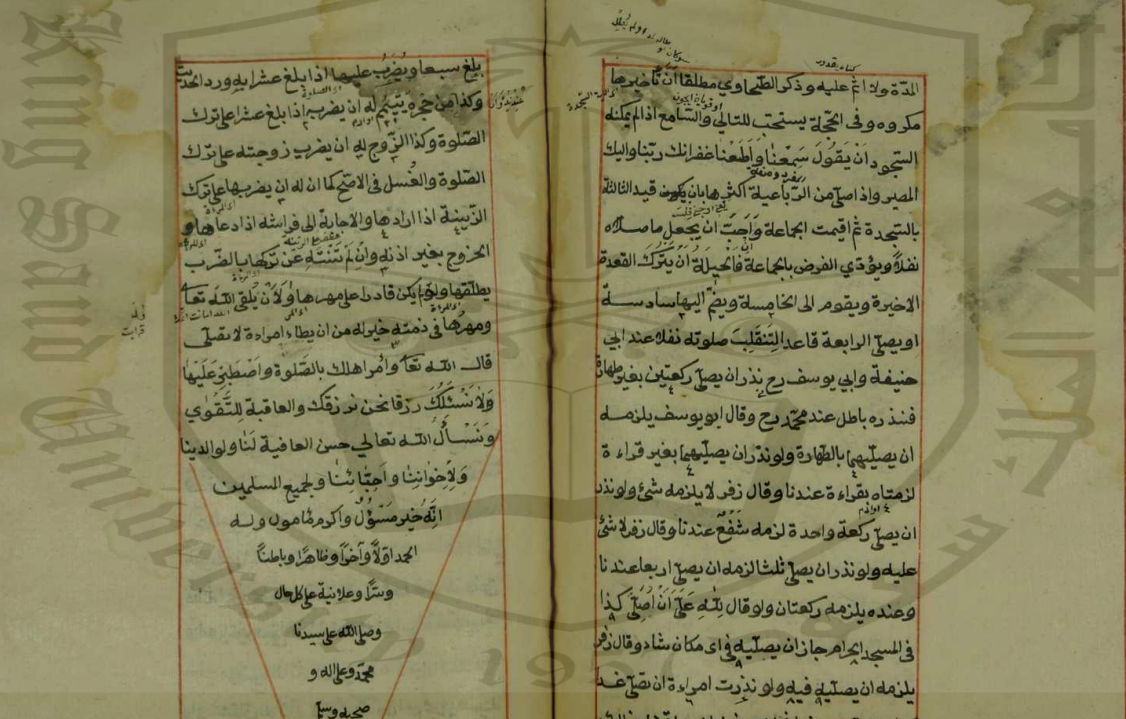 المدة ولا اثم عليه وذكر الطحاوي مطلقا ان تأخيرها
مكروه وفى الحجة يستحب للتالي والسامع اذا لم يمكنه
السجود اَنْ يَقُولَ سَمِعْنا وَاَطَعْنا غفرانك ربنا واليك
المصير واذا صلى من الرباعية اكثرها بان يكون قيد الثالثة
بالسجدة ثم اقيمت الجماعة وَاَحَبَّ ان يجعل ما صلاه
نفلا ويؤدي الفرض بالجماعة فالحيلة اَنْ يترك القعدة
الاخيرة ويقوم الى الخامسة ويضم اليها سادسة
او يصلى الرابعة قاعدا لتنقلب صلوته نفلا عند ابي
حنيفة وابي يوسف رح نذر ان يصلى ركعتين بغير طهارة
فنذره باطل عند محمد رح وقال ابو يوسف يلزمه
ان يصليهما بالطهارة ولو نذر ان يصليهما بغير قراءة
لزمتاه بقراءة عندنا وقال زفر لا يلزمه شئ ولو نذر
ان يصلى ركعة واحدة لزمه شفع عندنا وقال زفر لا شئ
عليه ولو نذر ان يصلى ثلثا لزمه ان يصلى اربعا عندنا
وعنده يلزمه ركعتان ولو قال لِلّٰهِ عَلَىَّ اَنْ اُصَلِّىَ كذا
فى المسجد الحرام جاز ان يصليه فى اى مكان شاء وقال زفر
يلزمه ان يصليه فيه ولو نذرت امراءة ان تصلى غدا
بلغ سبعا ويضرب عليها اذا بلغ عشرا به ورد الحديث
وكذا من حجره يتيم له ان يضربه اذا بلغ عشرا على ترك
الصلوة وكذا الزوج له ان يضرب زوجته على ترك
الصلوة والغسل فى الاصح كما ان له ان يضربها على ترك
الزينة اذا ارادها والاجابة الى فراشه اذا دعاها و
الخروج بغير اذنه وان لم تنته عن تركها بالضرب
يطلقها ولو لم يكن قادرا على مهرها ولان يلقى الله تعا
ومهرها فى ذمته خير له من ان يطاء امراءة لا تصلى
قال الله تعا وأمر اهلك بالصلوة واصطبر عليها
لا نسئلك رزقا نحن نرزقك والعاقبة للتقوي
ونسأل الله تعالي حسن العافية لنا ولوالدينا
ولاخواننا واحبّائنا ولجميع المسلمين
انه خير مسؤل واكرم مامول وله
الحمد اولا وآخرا وظاهرا وباطنا
وسرا وعلانية على كل حال
وصلى الله على سيدنا
محمد وعلى اله و
صحبه وسلم